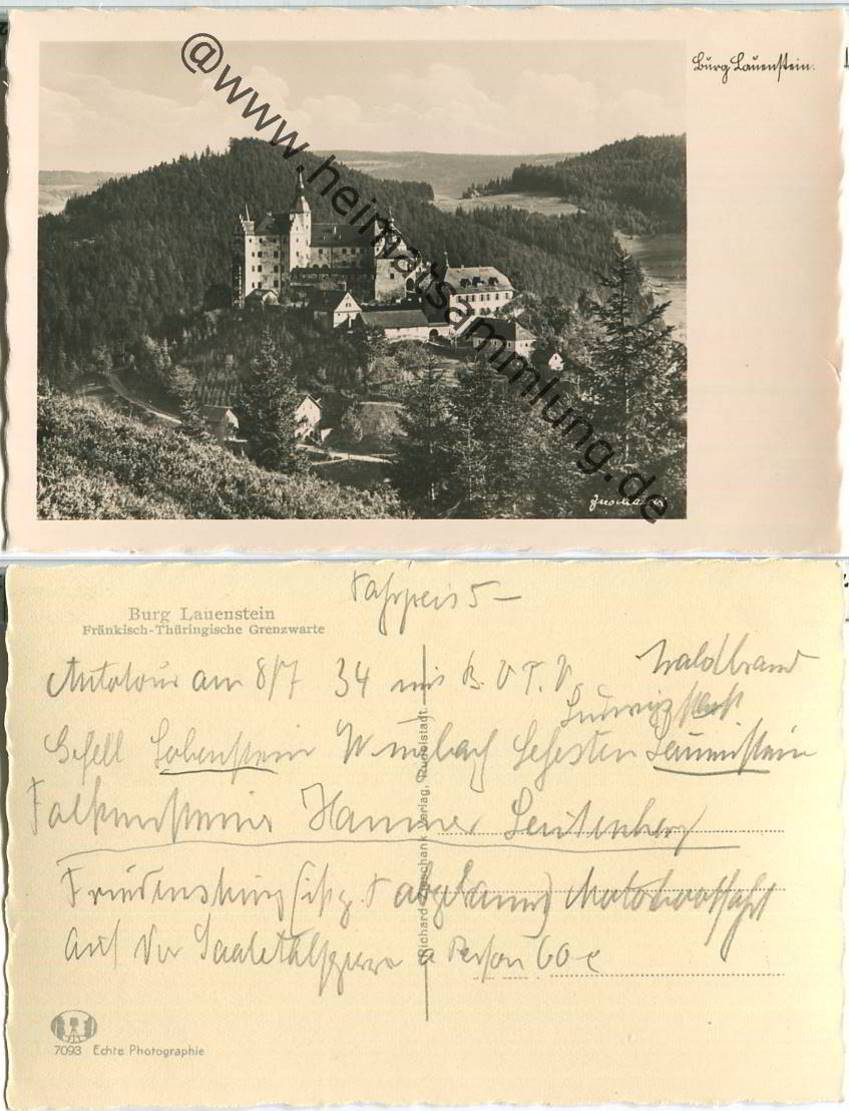 Burg Lauenstein.
@www.heimatsammlung.de
Fahrpreis 5-
Burg Lauenstein
Fränkisch-Thüringische Grenzwarte
Autotour am 8/7 34 mit B. V T. V. Waldbrand
Gefell Lobenstein Wurzbach Lehesten Lauenstein
Hammer Leutenberg
z. T abgebrannt) Motorbootfahrt
auf der Saaletalsperre a Person 60
Richard Zieschank Verlag, Rudolstadt
7093 Echte Photographie